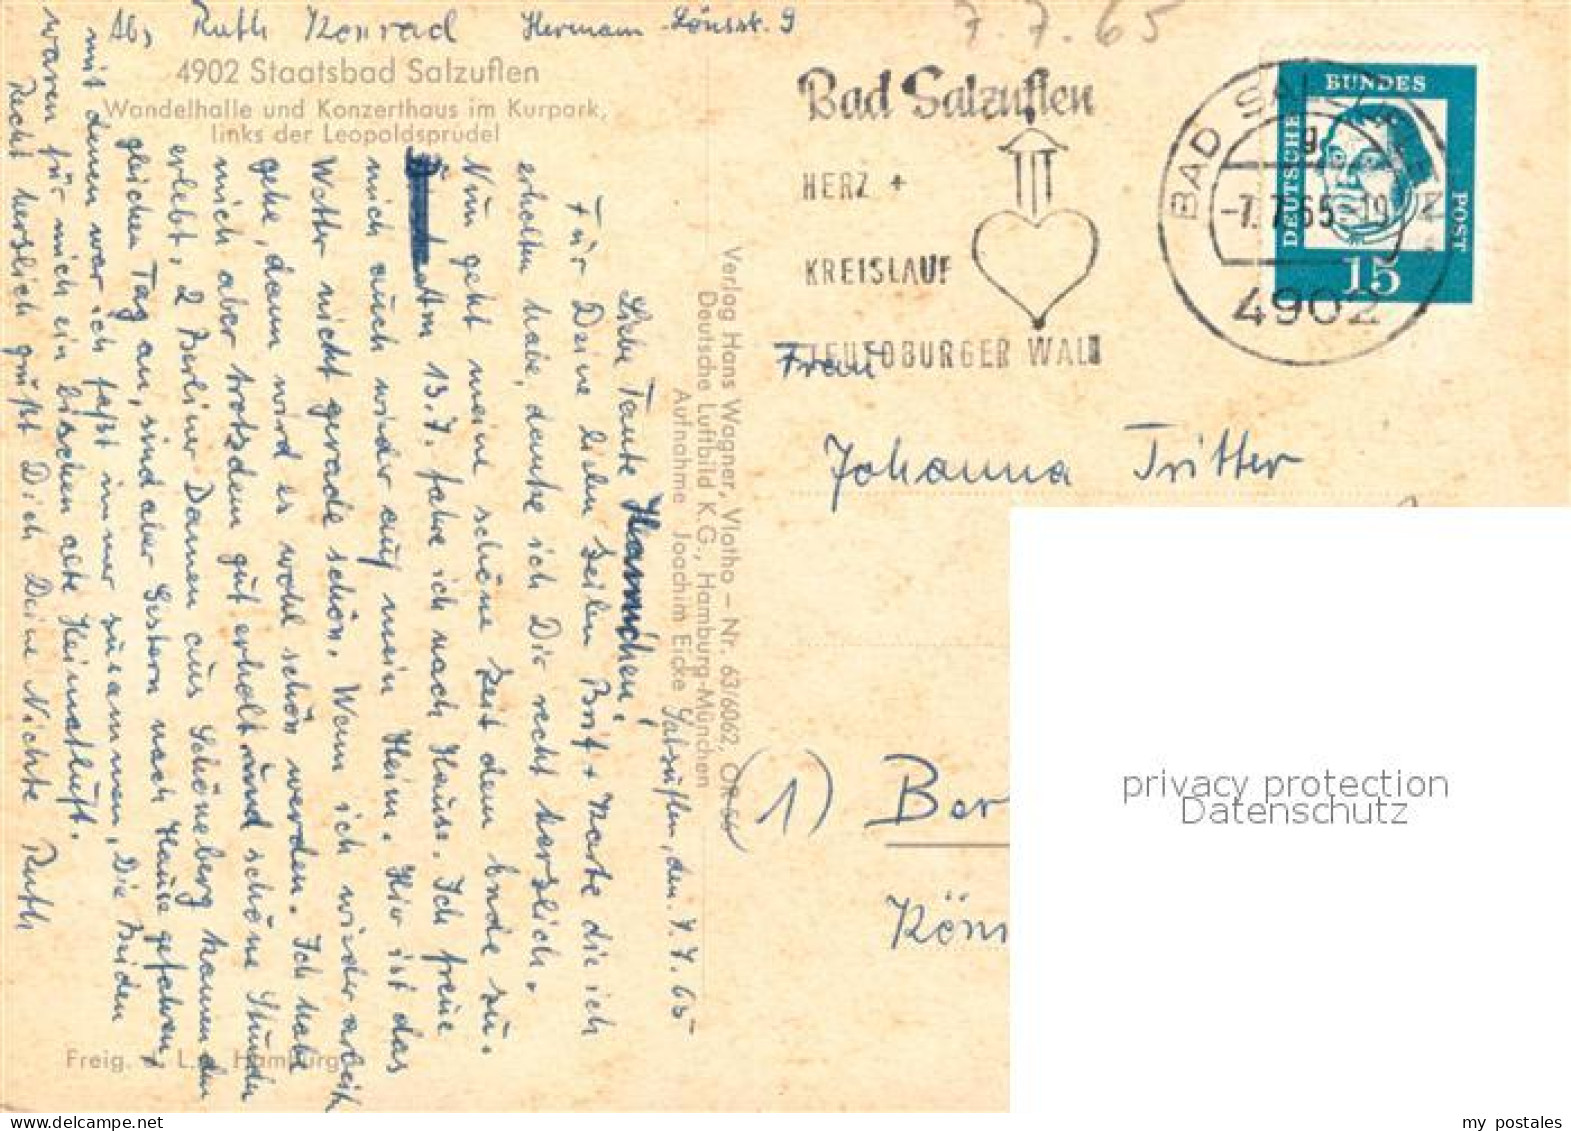 Abs. Ruth Konrad Hermann-Lönsstr. 9
4902 Staatsbad Salzuflen
Wandelhalle und Konzerthaus im Kurpark,
links der Leopoldsprudel
Salzuflen, den 7.7.65
Liebe Tante Hannichen!
Für Deine lieben Zeilen Brief + Karte die ich
erhalten habe, danke ich Dir recht herzlich.
Nun geht meine schöne Zeit dem Ende zu.
Am 13.7. fahre ich nach Hause. Ich freue
mich auch wieder auf mein Heim. Hier ist das
Wettr nicht gerade schön. Wenn ich wieder arbeit
gehe, dann wird es wohl schön werden. Ich habe
mich aber trotzdem gut erholt und schöne Stunden
erlebt, 2 Berliner Damen aus Schöneberg kamen den
gleichen Tag an, sind aber Gestern nach Hause gefahren,
mit denen war ich faßt immer zusammen, Die Beiden
waren für mich ein bischen alte Heimatluft.
Recht herzlich grüßt Dich Deine Nichte Ruth
Freig. L. Hamburg
Verlag Hans Wagner, Vlotho – Nr. 63/6062, OR 56
Deutsche Luftbild K.G., Hamburg-München
Aufnahme Joachim Eicke
7.7.65
Bad Salzuflen
HERZ +
KREISLAUF
TEUTOBURGER WALD
BAD SALZUFLEN
g
-7.7.65-19
4902
DEUTSCHE BUNDES POST
15
Frau
Johanna Tritter
(1) Ber
Kön
privacy protection
Datenschutz
my postales